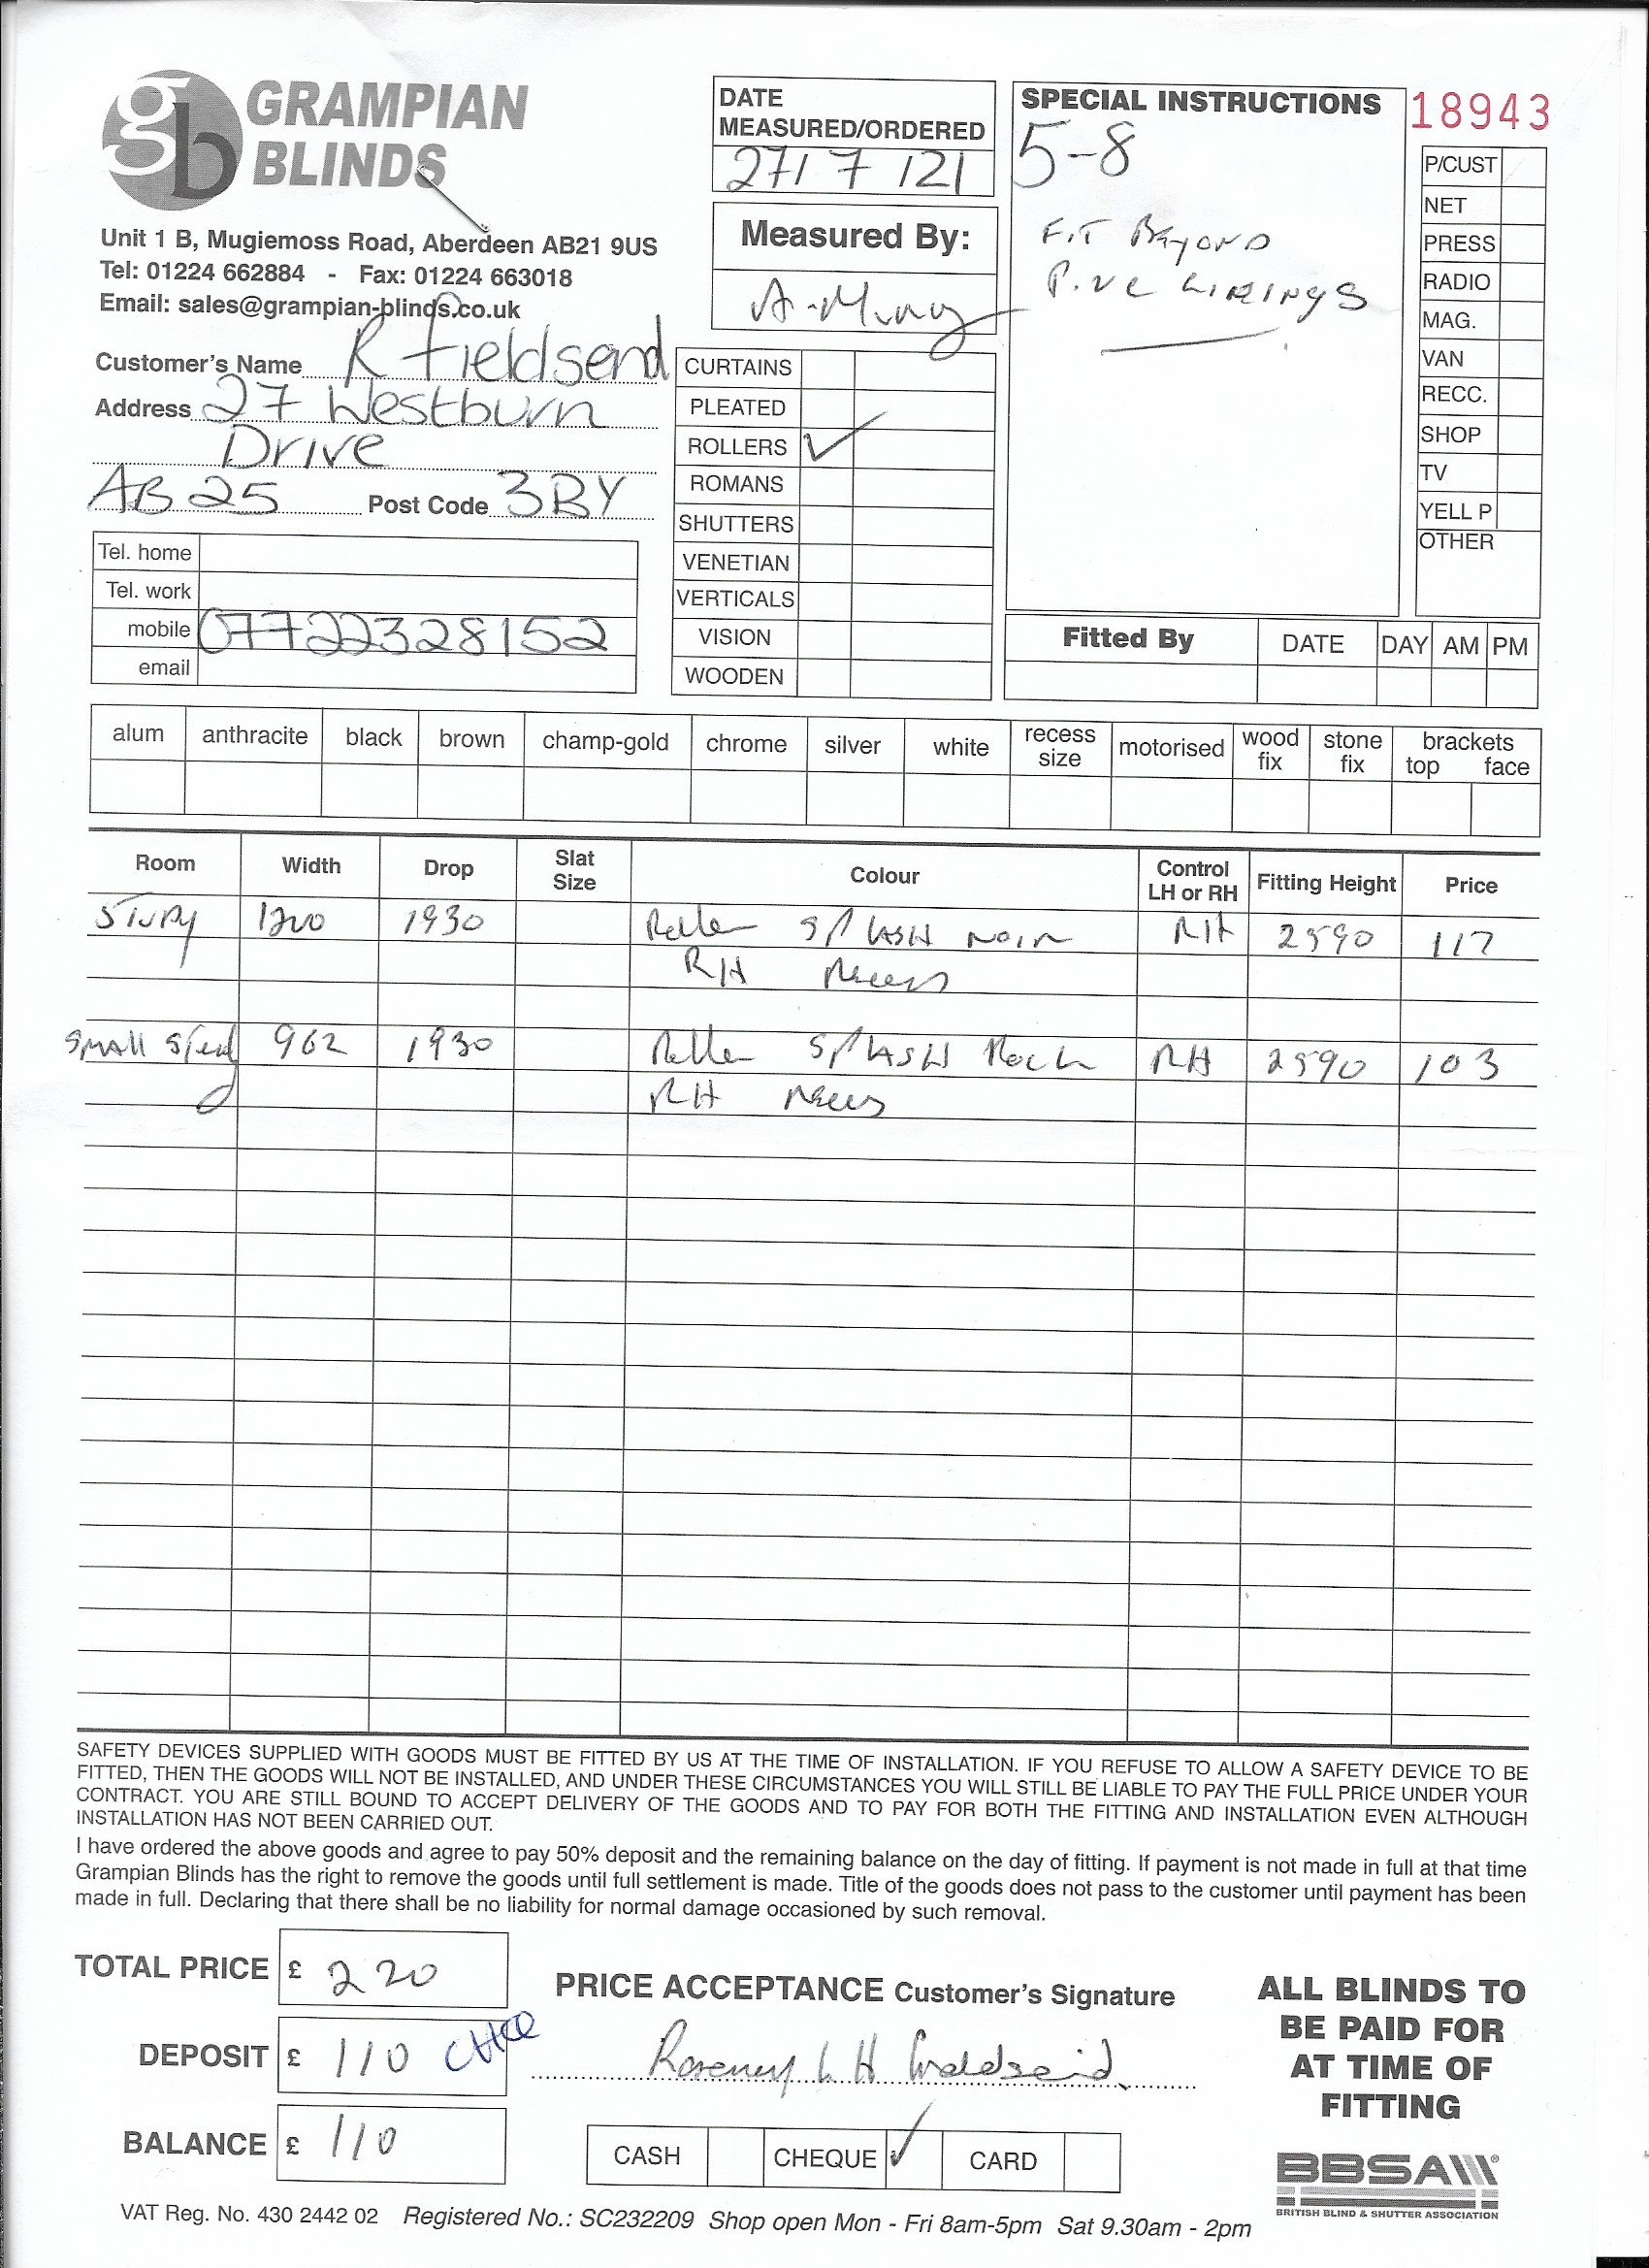 gb GRAMPIAN
BLINDS
Unit 1 B, Mugiemoss Road, Aberdeen AB21 9US
Tel: 01224 662884 - Fax: 01224 663018
Email: sales@grampian-blinds.co.uk
Customer's Name R Fieldsend
Address 27 Westburn
Drive
AB25 Post Code 3BY
Tel. home
Tel. work
mobile 07722328152
email
DATE
MEASURED/ORDERED
27/7/21
Measured By:
CURTAINS
PLEATED
ROLLERS ✓
ROMANS
SHUTTERS
VENETIAN
VERTICALS
VISION
WOODEN
SPECIAL INSTRUCTIONS
5-8
FIT BEYOND
P.VC LININGS
18943
P/CUST
NET
PRESS
RADIO
MAG.
VAN
RECC.
SHOP
TV
YELL P
OTHER
Fitted By DATE DAY AM PM
alum anthracite black brown champ-gold chrome silver white recess size motorised wood fix stone fix brackets top face
Room Width Drop Slat Size Colour Control LH or RH Fitting Height Price
STUDY 1200 1930 Roller SPLASH NOIR RH 2590 117
RH Recess
SMALL Study 962 1930 Roller SPLASH RH 2590 103
RH Recess
SAFETY DEVICES SUPPLIED WITH GOODS MUST BE FITTED BY US AT THE TIME OF INSTALLATION. IF YOU REFUSE TO ALLOW A SAFETY DEVICE TO BE
FITTED, THEN THE GOODS WILL NOT BE INSTALLED, AND UNDER THESE CIRCUMSTANCES YOU WILL STILL BE LIABLE TO PAY THE FULL PRICE UNDER YOUR
CONTRACT. YOU ARE STILL BOUND TO ACCEPT DELIVERY OF THE GOODS AND TO PAY FOR BOTH THE FITTING AND INSTALLATION EVEN ALTHOUGH
INSTALLATION HAS NOT BEEN CARRIED OUT.
I have ordered the above goods and agree to pay 50% deposit and the remaining balance on the day of fitting. If payment is not made in full at that time
Grampian Blinds has the right to remove the goods until full settlement is made. Title of the goods does not pass to the customer until payment has been
made in full. Declaring that there shall be no liability for normal damage occasioned by such removal.
TOTAL PRICE £ 220
DEPOSIT £ 110 CHQ
BALANCE £ 110
PRICE ACCEPTANCE Customer's Signature
Rosemary L H Fieldsend
CASH CHEQUE ✓ CARD
ALL BLINDS TO
BE PAID FOR
AT TIME OF
FITTING
BBSA
BRITISH BLIND & SHUTTER ASSOCIATION
VAT Reg. No. 430 2442 02 Registered No.: SC232209 Shop open Mon - Fri 8am-5pm Sat 9.30am - 2pm